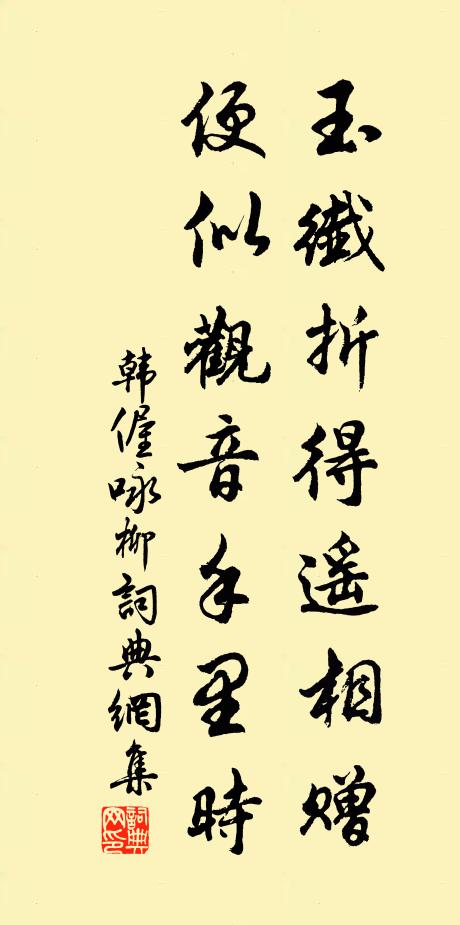 玉纖折得遥相赠
便似觀音手里時
韩偓咏柳詞典網集
詞典网印